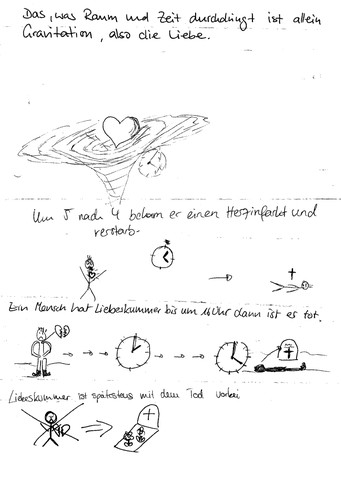 Das, was Raum und Zeit durchdringt ist allein
Gravitation, also die Liebe.
Um 5 nach 4 bekam er einen Herzinfarkt und
verstarb-
Ein Mensch hat Liebeskummer bis um 16 Uhr dann ist er tot.
Liebeskummer ist spätestens mit dem Tod vorbei